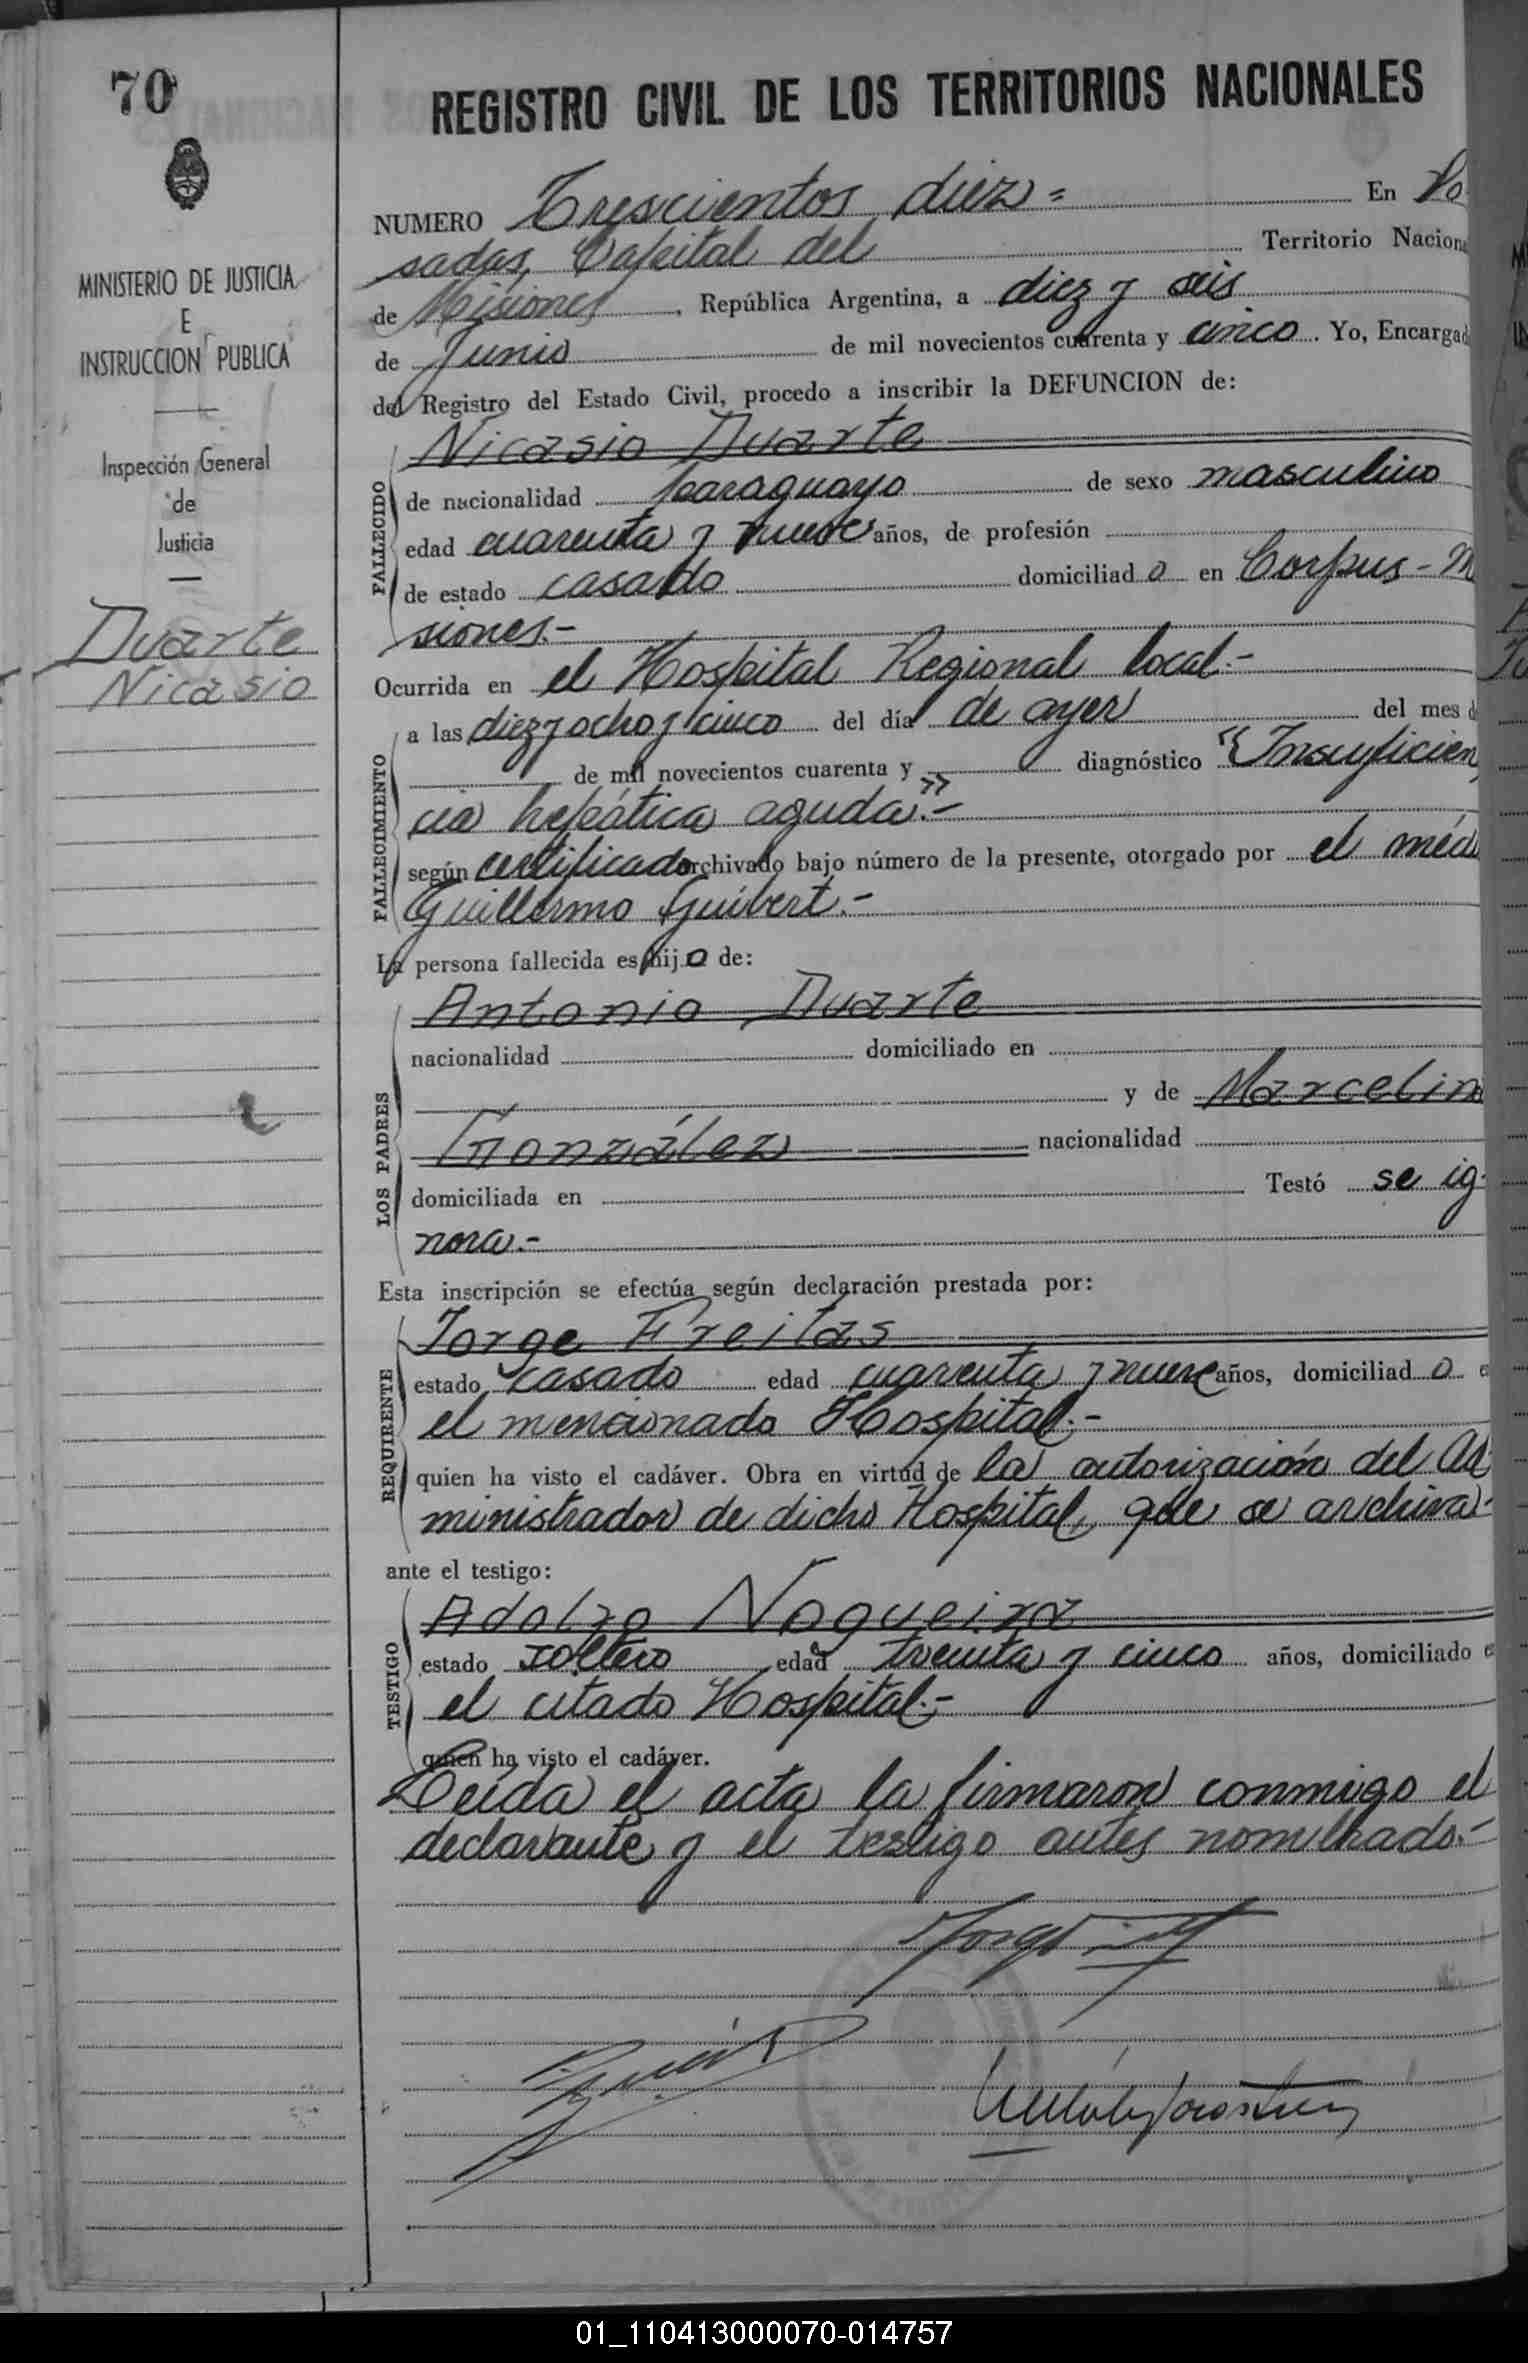 70
REGISTRO CIVIL DE LOS TERRITORIOS NACIONALES
MINISTERIO DE JUSTICIA
E
INSTRUCCION PUBLICA
Inspección General
de
Justicia
Duarte
Nicasio
NUMERO Trescientos diez = En Po
sadas, Capital del Territorio Naciona
de Misiones, República Argentina, a diez y seis
de Junio de mil novecientos cuarenta y cinco. Yo, Encargad
del Registro del Estado Civil, procedo a inscribir la DEFUNCION de:
FALLECIDO
Nicasio Duarte
de nacionalidad paraguayo de sexo masculino
edad cuarenta y nueve años, de profesión
de estado casado domiciliado en Corpus - M
siones.-
Ocurrida en el Hospital Regional local.-
FALLECIMIENTO
a las diez y ocho y cinco del día de ayer del mes d
de mil novecientos cuarenta y diagnóstico "Insuficien
cia hepática aguda".-
según certificado archivado bajo número de la presente, otorgado por el méd
Guillermo Guibert.-
La persona fallecida es hijo de:
LOS PADRES
Antonio Duarte
nacionalidad domiciliado en
y de Marcelin
González nacionalidad
domiciliada en Testó se ig-
nora.-
Esta inscripción se efectúa según declaración prestada por:
REQUIRENTE
Jorge Freitas
estado casado edad cuarenta y nueve años, domiciliado e
el mencionado Hospital.-
quien ha visto el cadáver. Obra en virtud de la autorización del Ad
ministrador de dicho Hospital, que se archiva-
ante el testigo:
TESTIGO
Adolfo Nogueira
estado soltero edad treinta y cinco años, domiciliado e
el citado Hospital.-
quien ha visto el cadáver.
Leída el acta la firmaron conmigo el
declarante y el testigo antes nombrado.-
01_110413000070-014757